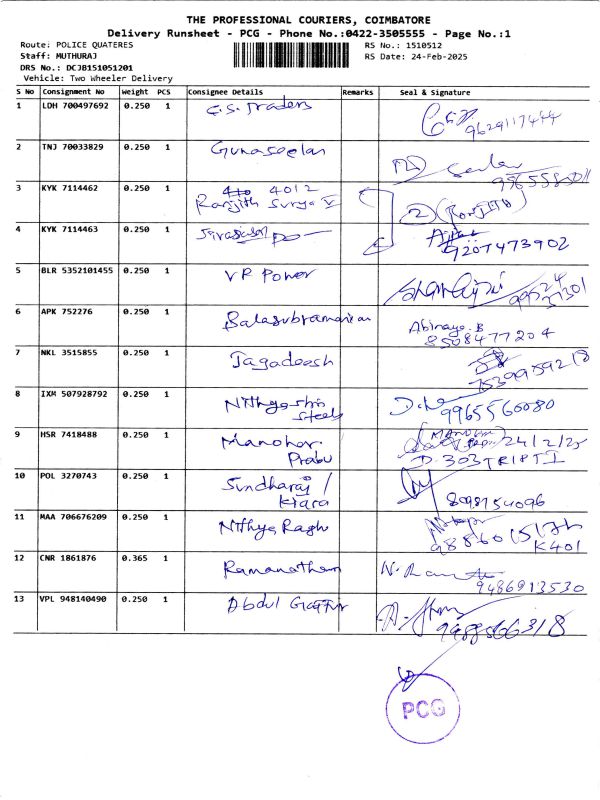 THE PROFESSIONAL COURIERS, COIMBATORE
Delivery Runsheet - PCG - Phone No.:0422-3505555 - Page No.:1
Route: POLICE QUATERES RS No.: 1510512
Staff: MUTHURAJ RS Date: 24-Feb-2025
DRS No.: DCJB151051201
Vehicle: Two Wheeler Delivery
S No Consignment No Weight PCS Consignee Details Remarks Seal & Signature
1 LDH 700497692 0.250 1 G.S. Traders
9629117444
2 TNJ 70033829 0.250 1 Gunaseelan
3 KYK 7114462 0.250 1 4012
Ranjith Surya V
4 KYK 7114463 0.250 1
9207473902
5 BLR 5352101455 0.250 1 VR Power
6 APK 752276 0.250 1 Balasubramanian Abinaya. B
8508477204
7 NKL 3515855 0.250 1 Jagadeesh
7539959218
8 IXM 507928792 0.250 1 Nithyashri
Steels 9965560080
9 HSR 7418488 0.250 1 Manohar
Prabu 24/2/25
D. 303 TRIPTI
10 POL 3270743 0.250 1 Sundharaj /
Kiara 8098154096
11 MAA 706676209 0.250 1 Nithya Raghu
K401
12 CNR 1861876 0.365 1 Ramanathan
9486913530
13 VPL 948140490 0.250 1 Abdul Gaffur
PCG